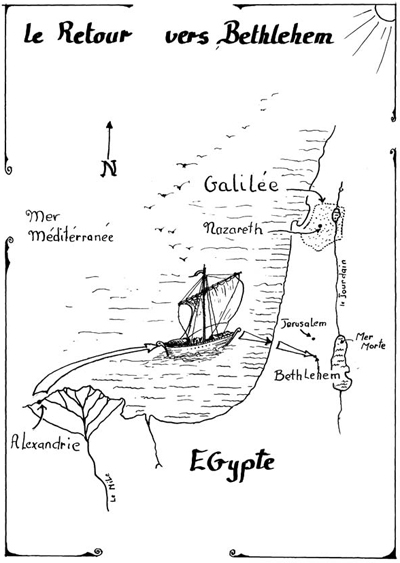 le Retour vers Bethlehem
N
Galilée
Mer
Méditérranée
Nazareth
le Jourdain
Jerusalem
Mer
Morte
Bethlehem
Alexandrie
Le Nil
EGypte